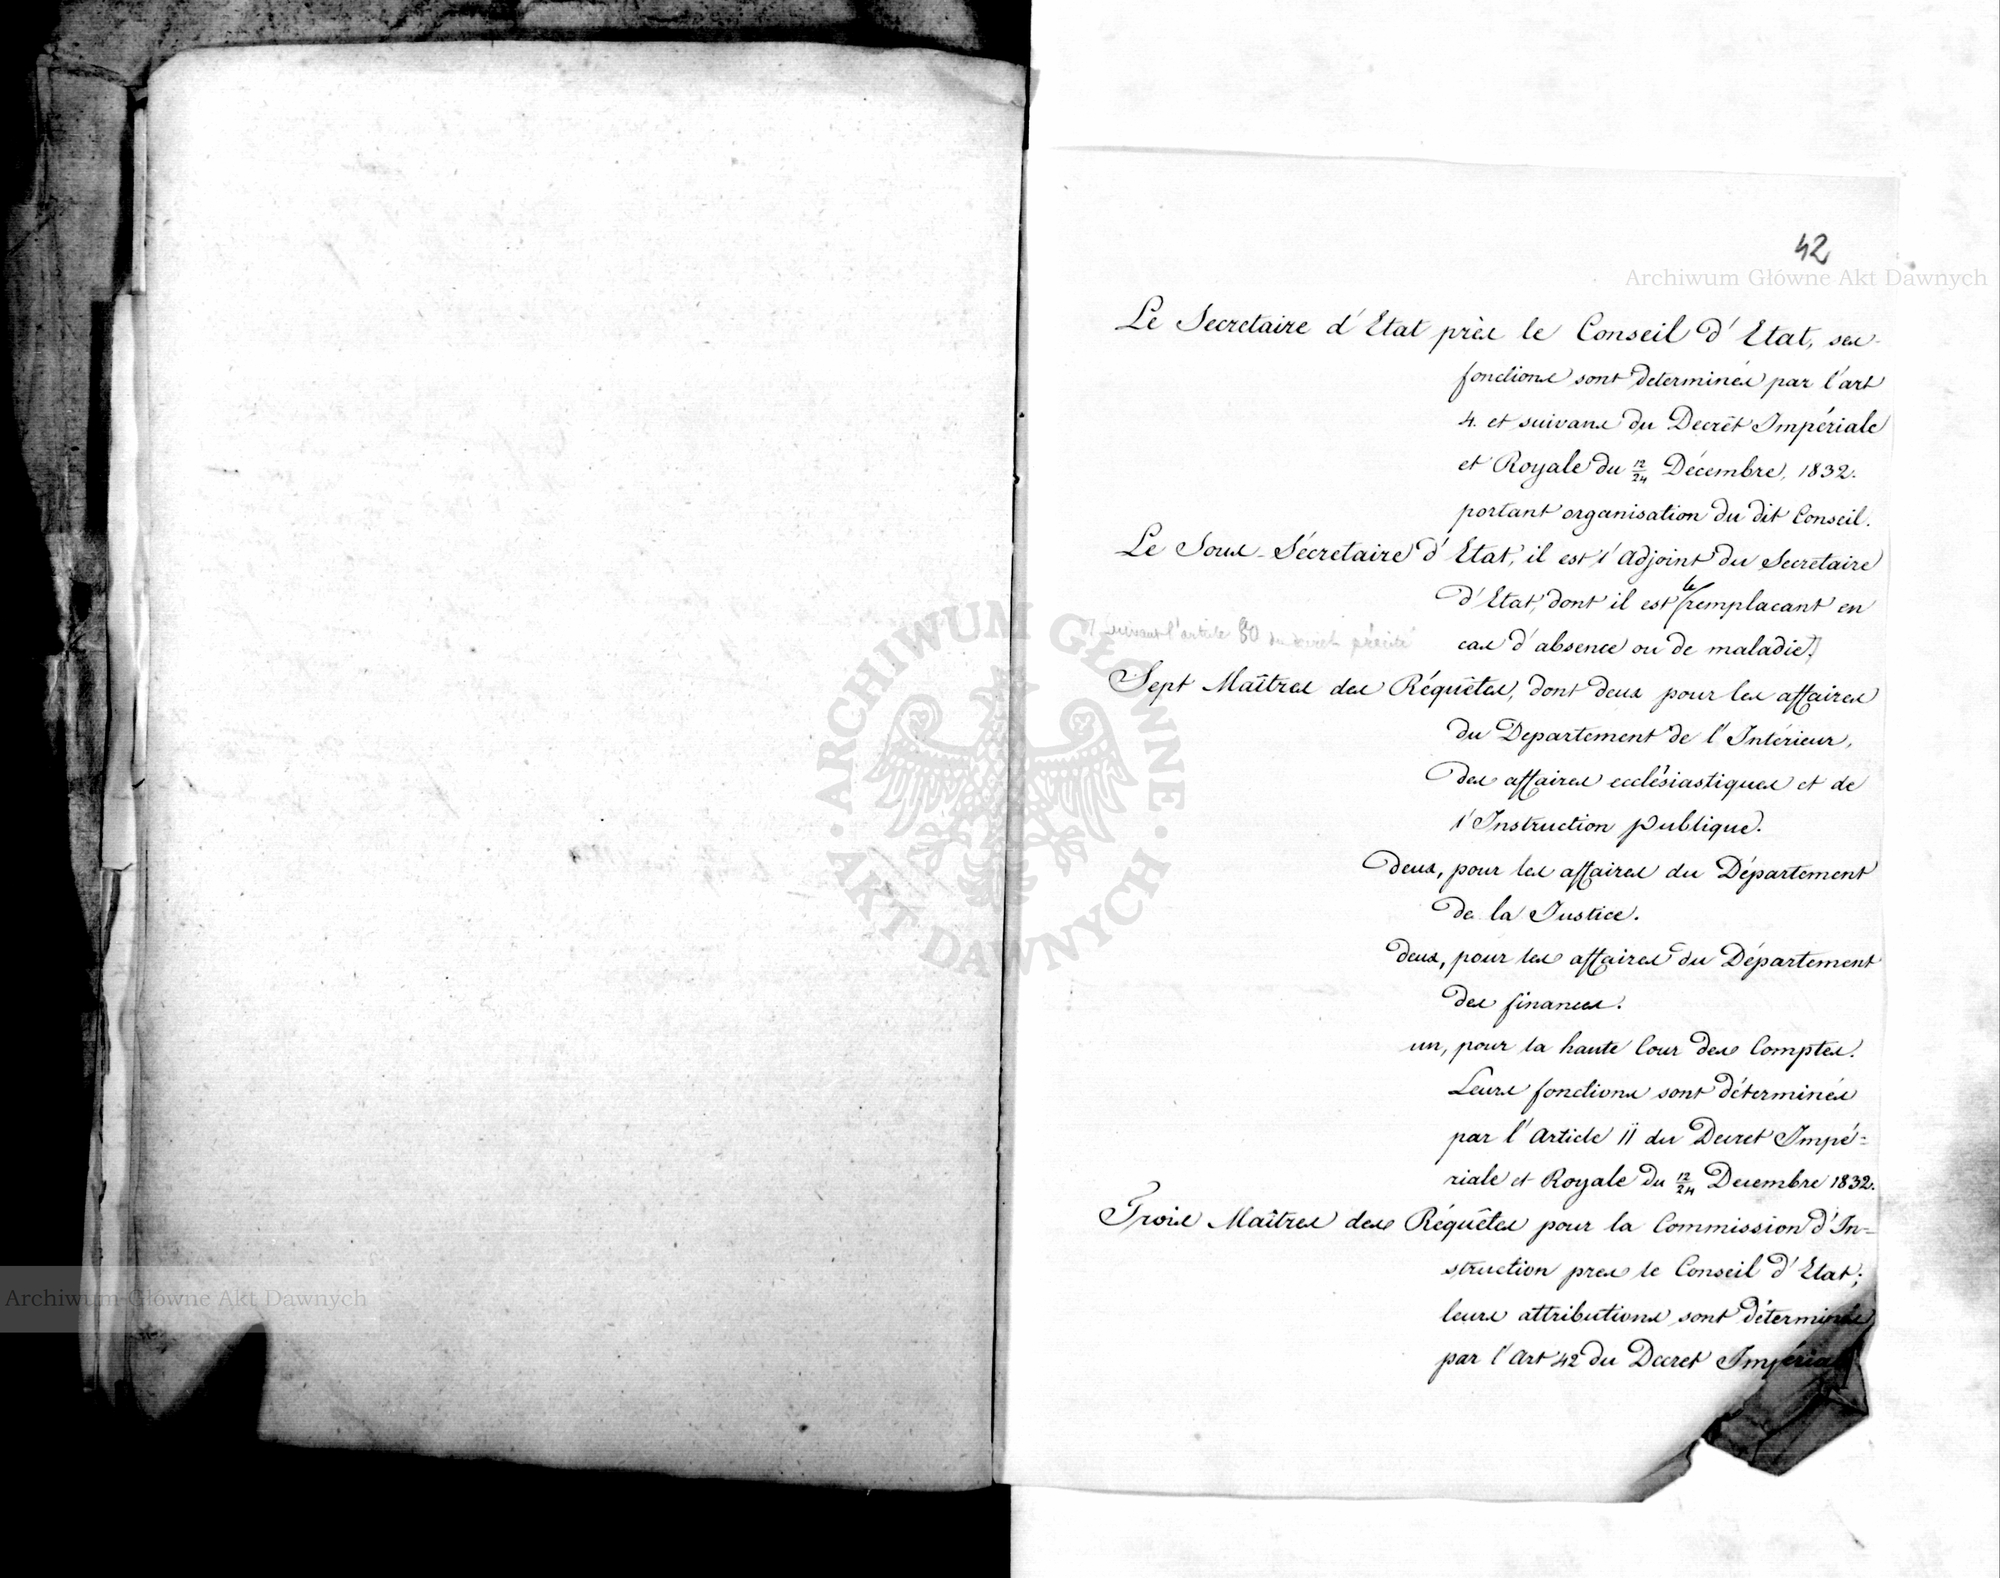 42
Le Secretaire d'Etat près le Conseil d'Etat, ses
fonctions sont determinés par l'art
4. et suivans du Decrèt Impériale
et Royale du 12/24 Décembre, 1832.
portant organisation du dit Conseil.
Le Sous-Sécretaire d'Etat, il est l'Adjoint du Secretaire
d'Etat, dont il est le remplacant en
cas d'absence ou de maladie.
suivant l'article 80 du décret précité
Sept Maîtres des Réquêtes, dont deux pour les affaires
du Departement de l'Intérieur,
des affaires ecclésiastiques et de
l'Instruction publique.
deux, pour les affaires du Département
de la Justice.
deux, pour les affaires du Département
des finances.
un, pour la haute Cour des Comptes.
Leurs fonctions sont déterminés
par l'Article 11 du Decret Impé=
riale et Royale du 12/24 Decembre 1832.
Trois Maîtres des Réquêtes pour la Commission d'In=
struction pres le Conseil d'Etat;
leurs attributions sont déterminés
par l'Art 42 du Decret Impérial
Archiwum Główne Akt Dawnych
Archiwum Główne Akt Dawnych
ARCHIWUM GŁÓWNE
AKT DAWNYCH